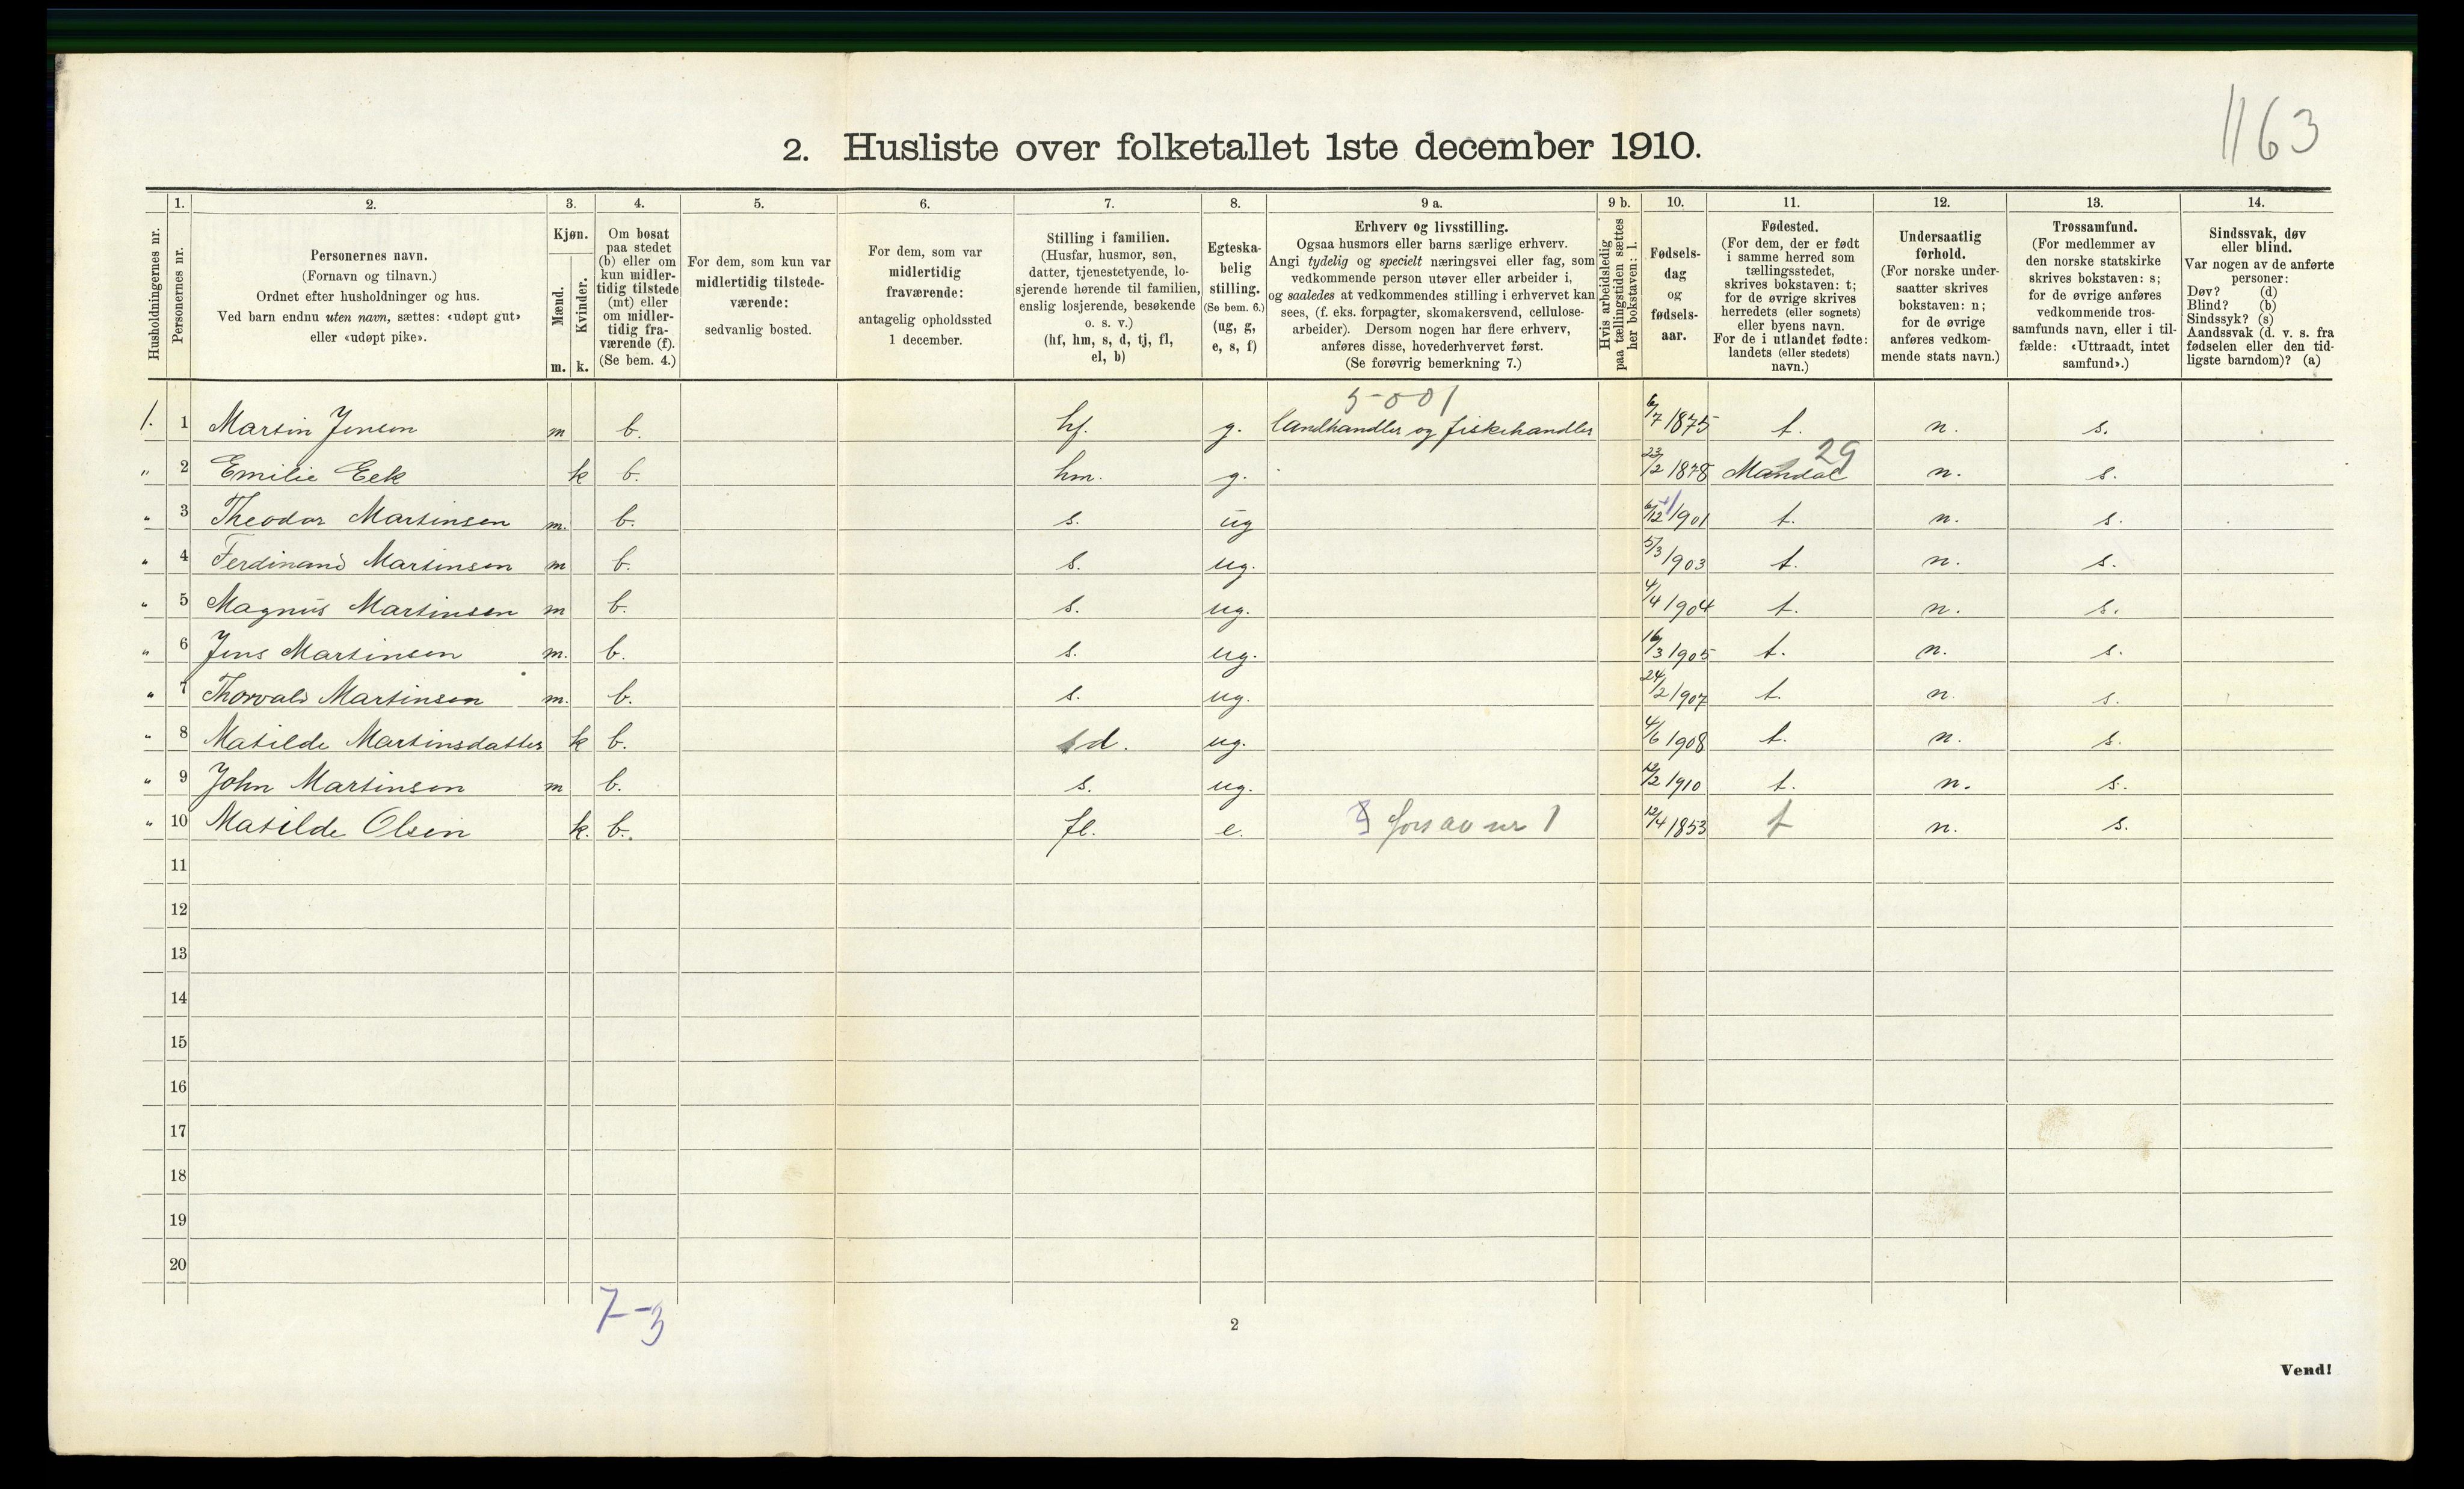 1163
2. Husliste over folketallet 1ste december 1910.
Husholdningernes nr.
1. Personernes nr.
2. Personernes navn.
(Fornavn og tilnavn.)
Ordnet efter husholdninger og hus.
Ved barn endnu uten navn, sættes: «udøpt gut»
eller «udøpt pike».
3. Kjøn.
Mænd. Kvinder.
m. k.
4. Om bosat
paa stedet
(b) eller om
kun midler-
tidig tilstede
(mt) eller
om midler-
tidig fra-
værende (f).
(Se bem. 4.)
5. For dem, som kun var
midlertidig tilstede-
værende:
sedvanlig bosted.
6. For dem, som var
midlertidig
fraværende:
antagelig opholdssted
1 december.
7. Stilling i familien.
(Husfar, husmor, søn,
datter, tjenestetyende, lo-
sjerende hørende til familien,
enslig losjerende, besøkende
o. s. v.)
(hf, hm, s, d, tj, fl,
el, b)
8. Egteska-
belig
stilling.
(Se bem. 6.)
(ug, g,
e, s, f)
9 a. Erhverv og livsstilling.
Ogsaa husmors eller barns særlige erhverv.
Angi tydelig og specielt næringsvei eller fag, som
vedkommende person utøver eller arbeider i,
og saaledes at vedkommendes stilling i erhvervet kan
sees, (f. eks. forpagter, skomakersvend, cellulose-
arbeider). Dersom nogen har flere erhverv,
anføres disse, hovederhvervet først.
(Se forøvrig bemerkning 7.)
9 b. Hvis arbeidsledig
paa tællingstiden sættes
her bokstaven: l.
10. Fødsels-
dag
og
fødsels-
aar.
11. Fødested.
(For dem, der er født
i samme herred som
tællingsstedet,
skrives bokstaven: t;
for de øvrige skrives
herredets (eller sognets)
eller byens navn.
For de i utlandet fødte:
landets (eller stedets)
navn.)
12. Undersaatlig
forhold.
(For norske under-
saatter skrives
bokstaven: n;
for de øvrige
anføres vedkom-
mende stats navn.)
13. Trossamfund.
(For medlemmer av
den norske statskirke
skrives bokstaven: s;
for de øvrige anføres
vedkommende tros-
samfunds navn, eller i til-
fælde: «Uttraadt, intet
samfund».)
14. Sindssvak, døv
eller blind.
Var nogen av de anførte
personer:
Døv? (d)
Blind? (b)
Sindssyk? (s)
Aandssvak (d. v. s. fra
fødselen eller den tid-
ligste barndom)? (a)
5-001
1. 1 Martin Jensen m b. hf. g. landhandler og fiskehandler 6/7 1875 t. n. s.
29
" 2 Emilie Eek k b. hm. g. 23/2 1878 Mandal n. s.
" 3 Theodor Martinsen m. b. s. ug 6/12 1901 t. n. s.
" 4 Ferdinand Martinsen m b. s. ug. 5/3 1903 t. n. s.
" 5 Magnus Martinsen m b. s. ug. 4/4 1904 t. n. s.
" 6 Jens Martinsen m. b. s. ug. 16/3 1905 t. n. s.
" 7 Thorvald Martinsen m. b. s. ug. 24/2 1907 t. n. s.
" 8 Matilde Martinsdatter k b. d. ug. 4/6 1908 t. n. s.
" 9 John Martinsen m b. s. ug. 12/2 1910 t. n. s.
" 10 Matilde Olsen k. b. fl. e. fors av nr 1 12/4 1853 t n. s.
11
12
13
14
15
16
17
18
19
20
7-3
2
Vend!